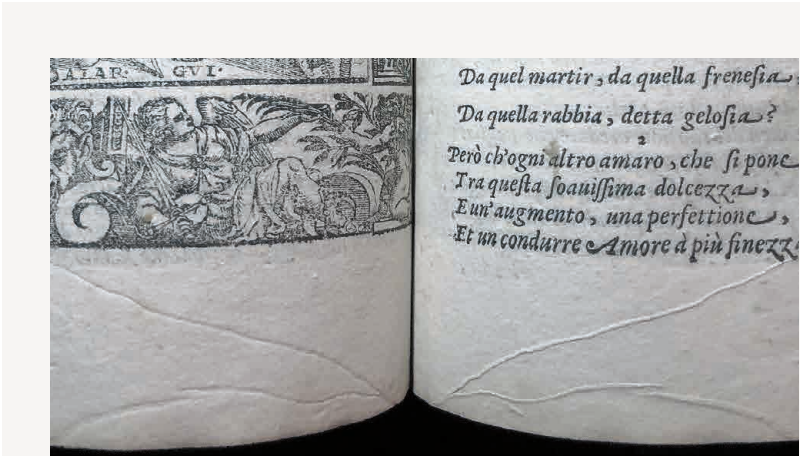 GVI·
Da quel martir, da quella frenesia,
Da quella rabbia, detta gelosia?
2
Però ch'ogni altro amaro, che si pone
Tra questa soauissima dolcezza,
E un'augmento, una perfettione,
Et un condurre Amore à più finezz